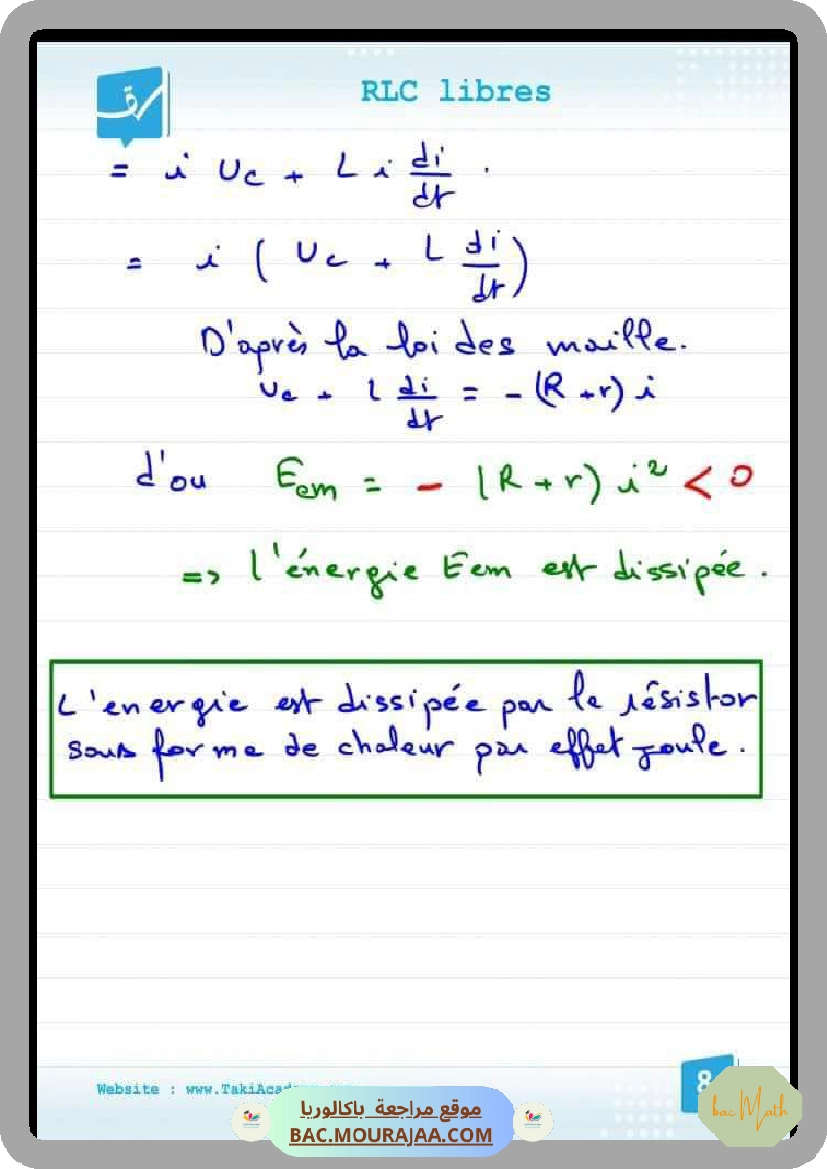 RLC libres
= i Uc + L i di/dt .
= i ( Uc + L di/dt )
D'après la loi des maille.
Uc + L di/dt = - (R + r) i
d'ou Eem = - (R + r) i² < 0
=> l'énergie Eem est dissipée.
L'energie est dissipée par le résistor
sous forme de chaleur par effet joule.
8
Website : www.TakiAcad
موقع مراجعة باكالوريا
BAC.MOURAJAA.COM
bac Math